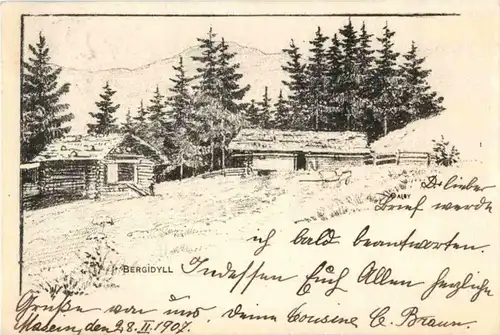 Dr. lieber
Brief werde
ich bald beantworten.
BERGIDYLL Indessen Euch Allen herzliche
Grüße von uns. Deine Cousine C. Braun.
den 28. II. 1907.